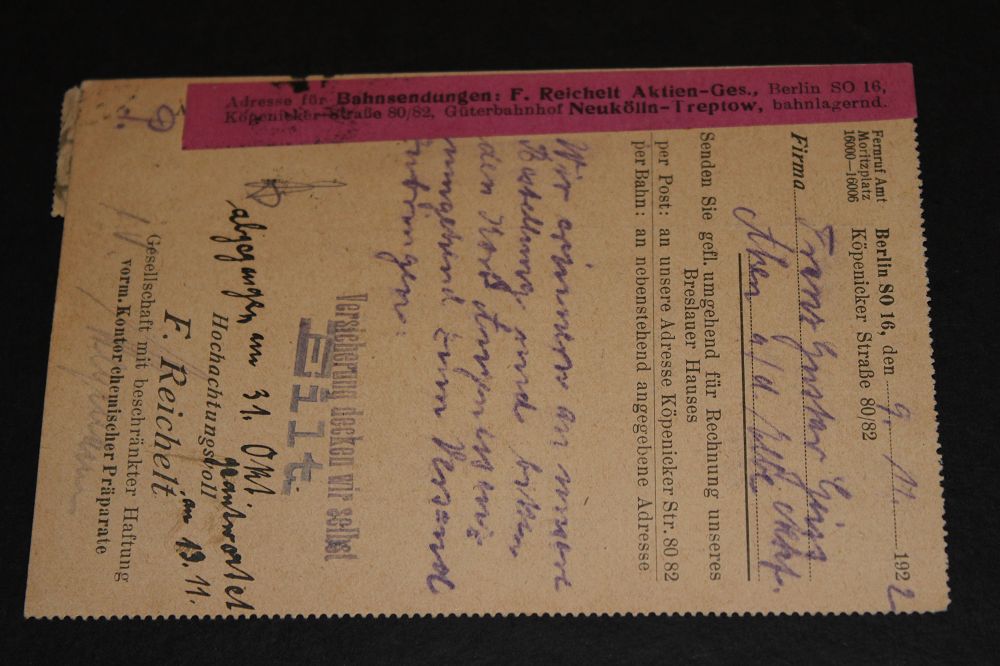 Adresse für Bahnsendungen: F. Reichelt Aktien-Ges., Berlin SO 16,
Köpenicker-Straße 80/82, Güterbahnhof Neukölln-Treptow, bahnlagernd.
Fernruf Amt
Moritzplatz
16000—16006
Berlin SO 16, den 9. 11. 1922
Köpenicker Straße 80/82
Firma Franz Gustav
Senden Sie gefl. umgehend für Rechnung unseres
Breslauer Hauses
per Post: an unsere Adresse Köpenicker Str. 80 82
per Bahn: an nebenstehend angegebene Adresse
Wir erinnern an unsere
Bestellung und bitten
den
umgehend zum Versand
zu bringen.
Versicherung decken wir selbst
Eilt.
abgegangen am 31. Okt
Hochachtungsvoll
F. Reichelt
am 13. 11.
Gesellschaft mit beschränkter Haftung
vorm. Kontor chemischer Präparate